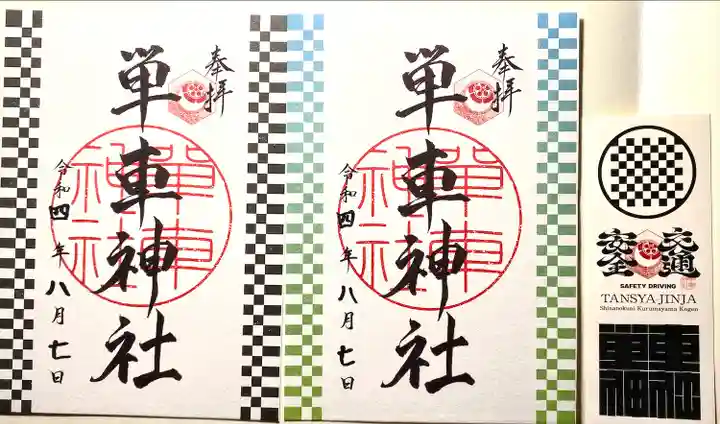 奉拝
単車神社
單車神社
令和四年八月七日
奉拝
単車神社
單車神社
令和四年八月七日
交通安全
SAFETY DRIVING
TANSYA-JINJA
Shinanokuni Kurumayama Kogen
單車神社